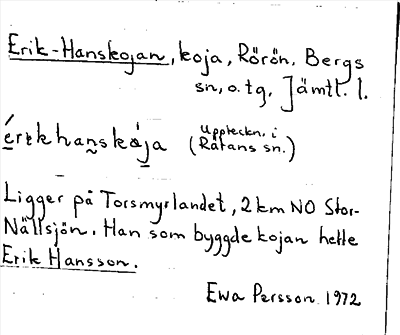 Erik-Hanskojan, koja, Rörön, Bergs
sn, o. tg, Jämtl. l.
(Uppteckn. i
Rätans sn.)
Ligger på Torsmyrlandet, 2 km NO Stor-
Nällsjön. Han som byggde kojan hette
Erik Hansson.
Ewa Persson 1972